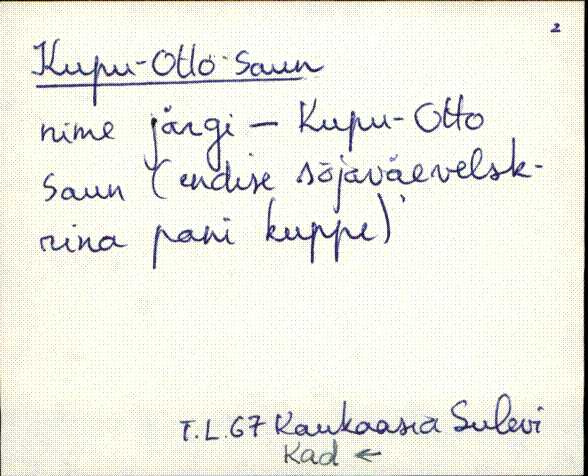 2
Kupu-Otto saun
nime järgi — Kupu-Otto
saun (endise sõjaväevelsk-
rina pani kuppe)
T.L.67 Kaukaasia Sulevi
Kad ←